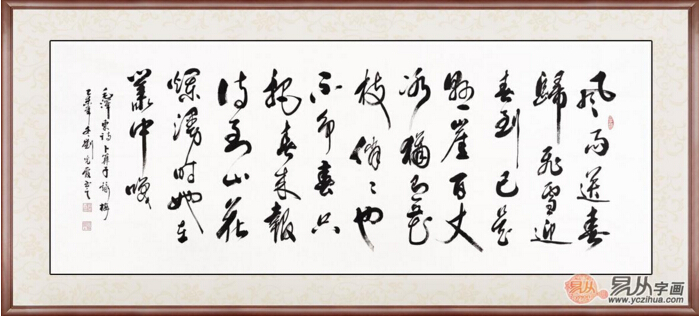 風雨送春
歸飛雪迎
春到已是
懸崖百丈
冰猶有花
枝俏〻也
不争春只
把春来報
待到山花
爛漫時她在
叢中笑
毛澤東詞卜算子詠梅
乙未年冬劉光霞书
易从字画
www.yczihua.com